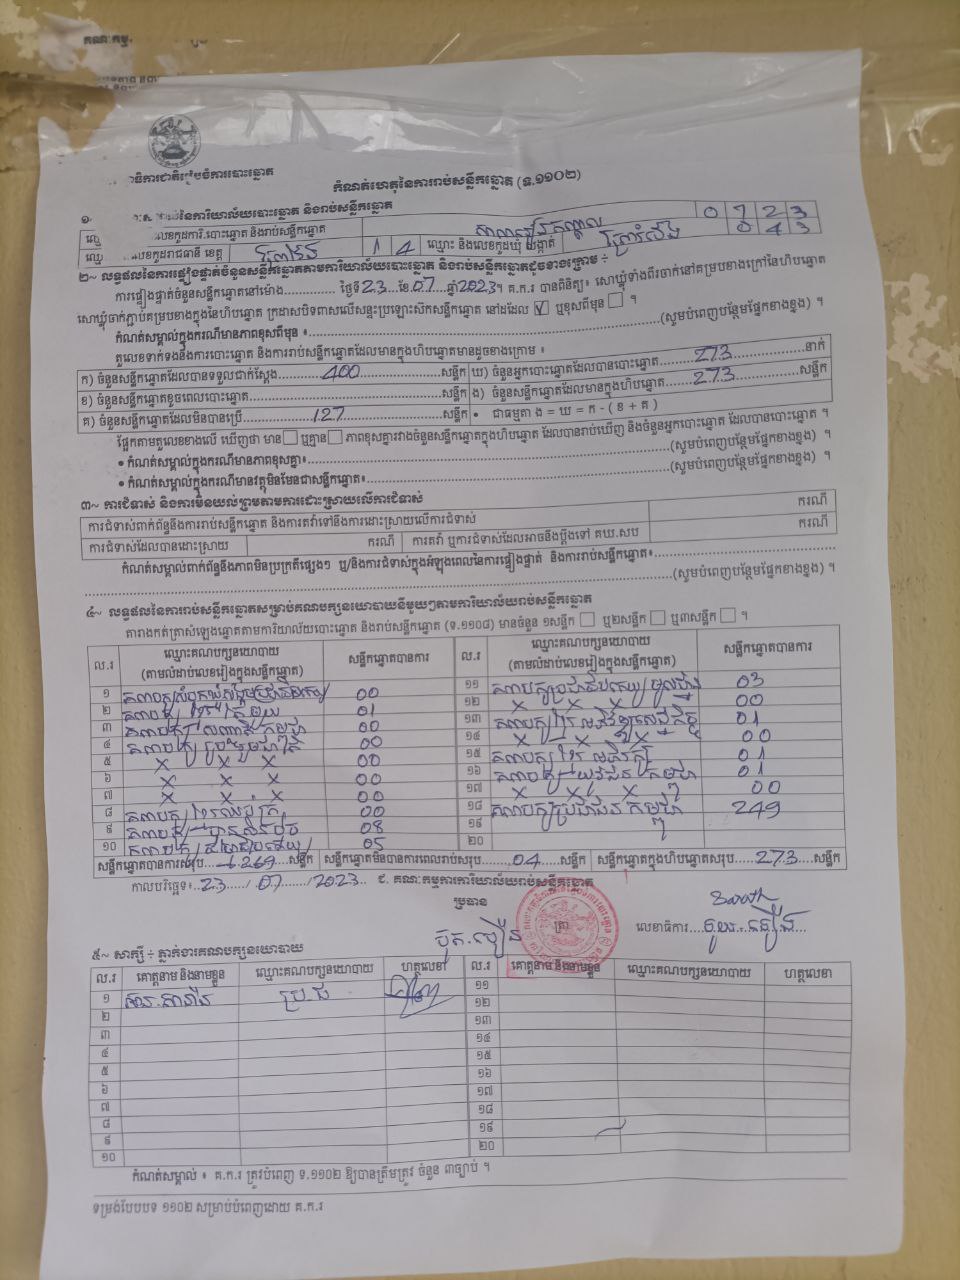 គណៈកម្ម
ធិការជាតិរៀបចំការបោះឆ្នោត
កំណត់ហេតុនៃការរាប់សន្លឹកឆ្នោត (ទ.១១០២)
នៃការិយាល័យបោះឆ្នោត និងរាប់សន្លឹកឆ្នោត
លេខកូដការិ.បោះឆ្នោត និងរាប់សន្លឹកឆ្នោត 0 7 2 3
លេខកូដរាជធានី ខេត្ត ព្រៃវែង 1 4 ឈ្មោះ និងលេខកូដឃុំ សង្កាត់ 0 4 3
២~ លទ្ធផលនៃការផ្ទៀងផ្ទាត់ចំនួនសន្លឹកឆ្នោតតាមការិយាល័យបោះឆ្នោត និងរាប់សន្លឹកឆ្នោតដូចខាងក្រោម ÷
ការផ្ទៀងផ្ទាត់ចំនួនសន្លឹកឆ្នោតនៅម៉ោង............. ថ្ងៃទី23...ខែ.07...ឆ្នាំ2023។ គ.ក.រ បានពិនិត្យ៖ សោឃ្លុំទាំងពីរចាក់នៅគម្របខាងក្រៅនៃហិបឆ្នោត
សោឃ្លុំចាក់ភ្ជាប់គម្របខាងក្នុងនៃហិបឆ្នោត ក្រដាសបិទពាសលើសន្ទះប្រឡោះស៊កសន្លឹកឆ្នោត នៅដដែល ☑ ឬខុសពីមុន ☐ ។
កំណត់សម្គាល់ក្នុងករណីមានភាពខុសពីមុន ៖..........(សូមបំពេញបន្ថែមផ្នែកខាងខ្នង) ។
តួលេខទាក់ទងនឹងការបោះឆ្នោត និងការរាប់សន្លឹកឆ្នោតដែលមានក្នុងហិបឆ្នោតមានដូចខាងក្រោម ៖
ក) ចំនួនសន្លឹកឆ្នោតដែលបានទទួលជាក់ស្តែង.....400.....សន្លឹក ឃ) ចំនួនអ្នកបោះឆ្នោតដែលបានបោះឆ្នោត.....273.....នាក់
ខ) ចំនួនសន្លឹកឆ្នោតខូចពេលបោះឆ្នោត..........សន្លឹក ង) ចំនួនសន្លឹកឆ្នោតដែលមានក្នុងហិបឆ្នោត.....273.....សន្លឹក
គ) ចំនួនសន្លឹកឆ្នោតដែលមិនបានប្រើ.....127.....សន្លឹក • ជាធម្មតា ង = ឃ = ក - ( ខ + គ )
ផ្អែកតាមតួលេខខាងលើ ឃើញថា មាន ☐ ឬគ្មាន ☐ ភាពខុសគ្នារវាងចំនួនសន្លឹកឆ្នោតក្នុងហិបឆ្នោត ដែលបានរាប់ឃើញ និងចំនួនអ្នកបោះឆ្នោត ដែលបានបោះឆ្នោត ។
• កំណត់សម្គាល់ក្នុងករណីមានភាពខុសគ្នា៖..........(សូមបំពេញបន្ថែមផ្នែកខាងខ្នង) ។
• កំណត់សម្គាល់ក្នុងករណីមានវត្ថុមិនមែនជាសន្លឹកឆ្នោត៖..........(សូមបំពេញបន្ថែមផ្នែកខាងខ្នង) ។
៣~ ការជំទាស់ និងការមិនយល់ព្រមតាមការដោះស្រាយលើការជំទាស់
ការជំទាស់ពាក់ព័ន្ធនឹងការរាប់សន្លឹកឆ្នោត និងការតវ៉ាទៅនឹងការដោះស្រាយលើការជំទាស់ ករណី
ការជំទាស់ដែលបានដោះស្រាយ ករណី ការតវ៉ា ឬការជំទាស់ដែលអាចនឹងប្តឹងទៅ គឃ.សប ករណី
កំណត់សម្គាល់ពាក់ព័ន្ធនឹងភាពមិនប្រក្រតីផ្សេងៗ ឬ/និងការជំទាស់ក្នុងអំឡុងពេលនៃការផ្ទៀងផ្ទាត់ និងការរាប់សន្លឹកឆ្នោត៖..........
..........(សូមបំពេញបន្ថែមផ្នែកខាងខ្នង) ។
៤~ លទ្ធផលនៃការរាប់សន្លឹកឆ្នោតសម្រាប់គណបក្សនយោបាយនីមួយៗតាមការិយាល័យរាប់សន្លឹកឆ្នោត
តារាងកត់ត្រាសំឡេងឆ្នោតតាមការិយាល័យបោះឆ្នោត និងរាប់សន្លឹកឆ្នោត (ទ.១១០៨) មានចំនួន ១សន្លឹក ☐ ឬ២សន្លឹក ☐ ឬ៣សន្លឹក ☐ ។
ល.រ ឈ្មោះគណបក្សនយោបាយ (តាមលំដាប់លេខរៀងក្នុងសន្លឹកឆ្នោត) សន្លឹកឆ្នោតបានការ ល.រ ឈ្មោះគណបក្សនយោបាយ (តាមលំដាប់លេខរៀងក្នុងសន្លឹកឆ្នោត) សន្លឹកឆ្នោតបានការ
១ 00 ១១ 03
២ គណបក្ស ខ្មែរតែមួយ 01 ១២ x x x 00
៣ 00 ១៣ 01
៤ 00 ១៤ x x x x 00
៥ x x x 00 ១៥ 01
៦ x x x 00 ១៦ គណបក្ស យុវជនកម្ពុជា 01
៧ x x x 00 ១៧ x x x 00
៨ 00 ១៨ គណបក្សប្រជាជនកម្ពុជា 249
៩ 08 ១៩
១០ 05 ២០
សន្លឹកឆ្នោតបានការសរុប.....269.....សន្លឹក សន្លឹកឆ្នោតមិនបានការពេលរាប់សរុប.....04.....សន្លឹក សន្លឹកឆ្នោតក្នុងហិបឆ្នោតសរុប.....273.....សន្លឹក
កាលបរិច្ឆេទ៖..23...../07....../2023.. ជ. គណៈកម្មការការិយាល័យរាប់សន្លឹកឆ្នោត
ប្រធាន
ត្រា លេខាធិការ
៥~ សាក្សី ÷ ភ្នាក់ងារគណបក្សនយោបាយ
ល.រ គោត្តនាម និងនាមខ្លួន ឈ្មោះគណបក្សនយោបាយ ហត្ថលេខា ល.រ គោត្តនាម និងនាមខ្លួន ឈ្មោះគណបក្សនយោបាយ ហត្ថលេខា
១ ប្រ.ជ ១១
២ ១២
៣ ១៣
៤ ១៤
៥ ១៥
៦ ១៦
៧ ១៧
៨ ១៨
៩ ១៩
១០ ២០
កំណត់សម្គាល់ ៖ គ.ក.រ ត្រូវបំពេញ ទ.១១០២ ឱ្យបានត្រឹមត្រូវ ចំនួន ៣ច្បាប់ ។
ទម្រង់បែបបទ ១១០២ សម្រាប់បំពេញដោយ គ.ក.រ